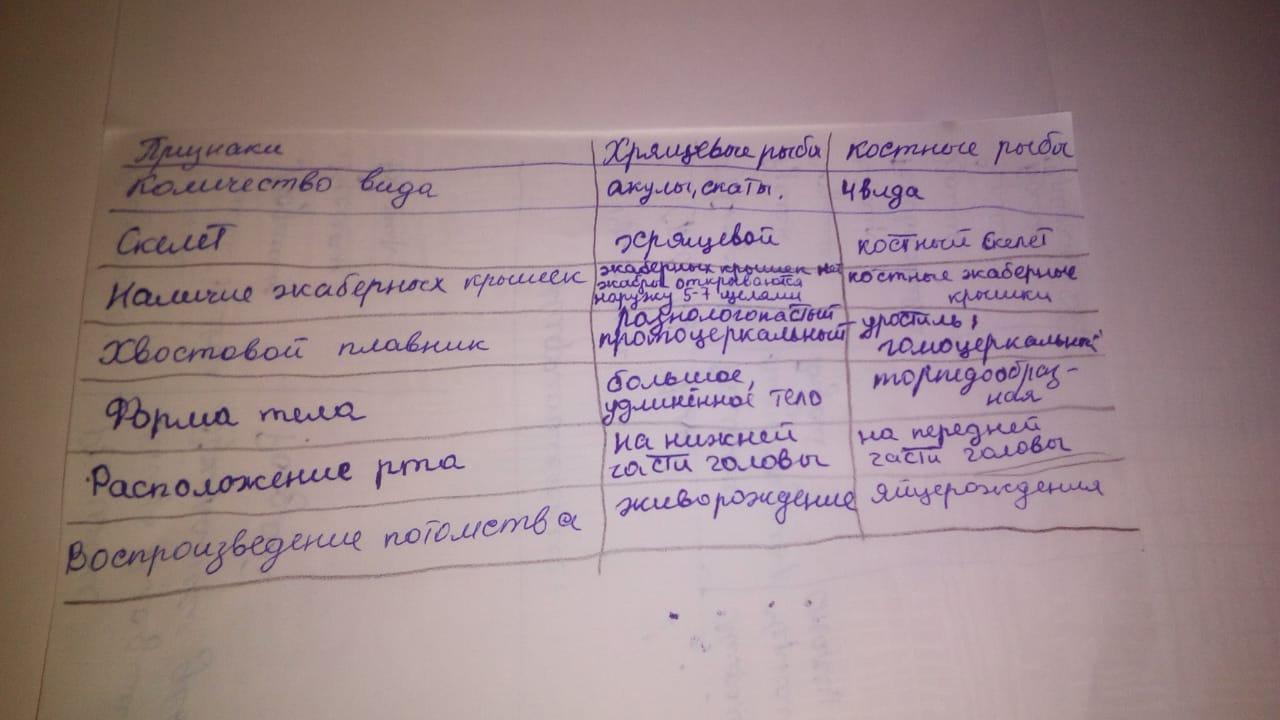 Признаки Хрящевые рыбы костные рыбы
Количество вида акулы, скаты. 4 вида
Скелет хрящевой костный скелет
Наличие жаберных крышек жаберных крышек нет костные жаберные
жабры открываются крышки
наружу 5-7 щелами
Хвостовой плавник разнолопастый уростиль,
протоцеркальный гомоцеркальный
Форма тела большое, торпедообраз-
удлинённое тело ная
Расположение рта на нижней на передней
части головы части головы
Воспроизведение потомства живорождение яйцерождения